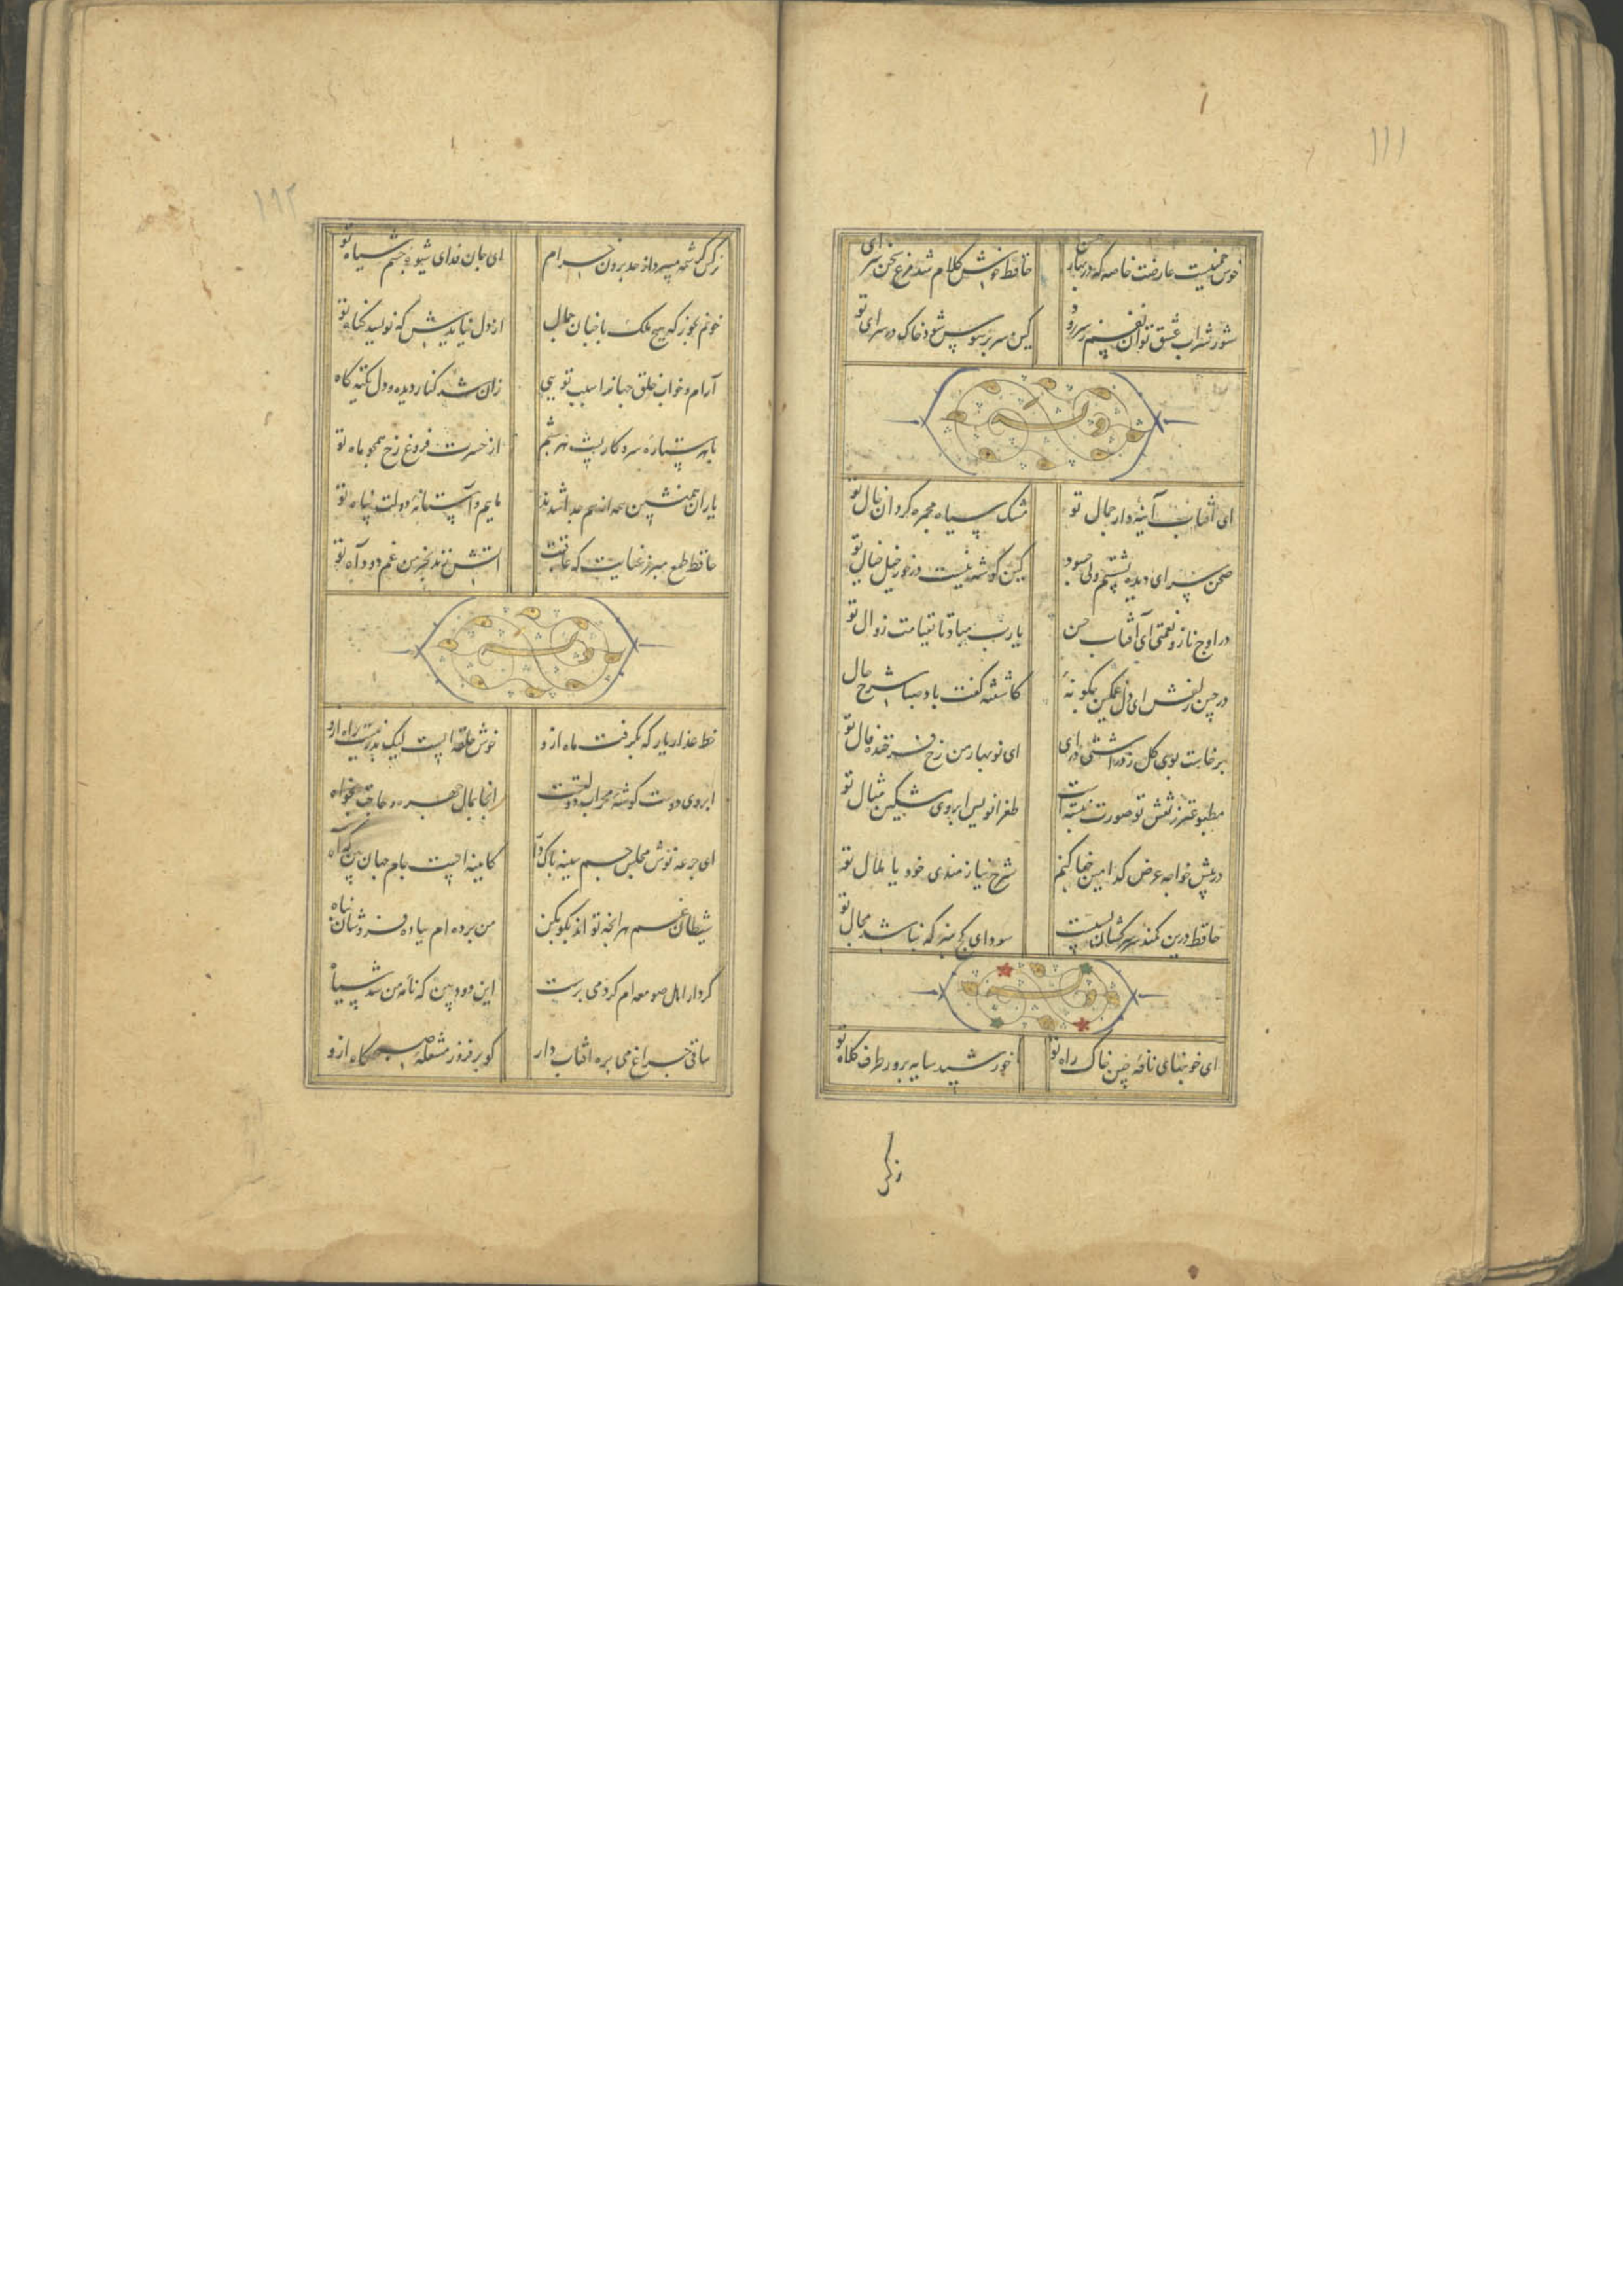 ۱۱۱
خوش چمنیست عارضت خاصه که در بهار حسن حافظ خوش کلام شد مرغ سخن سرای تو
شور شراب عشق تو آن نفسم رود ز سر کین سر پر هوس شود خاک در سرای تو
وله
ای آفتاب آینه دار جمال تو مشک سیاه مجمره گردان خال تو
صحن سرای دیده بشستم ولی چه سود کین گوشه نیست درخور خیل خیال تو
در اوج ناز و نعمتی ای آفتاب حسن یارب مباد تا بقیامت زوال تو
در چین زلفش ای دل مسکین چگونهٔ کاشفته گفت باد صبا شرح حال تو
برخاست بوی گل ز در آشتی درآی ای نوبهار من رخ فرخنده فال تو
مطبوعتر ز نقش تو صورت نبسته است طغرا نویس ابروی مشکین مثال تو
در پیش خواجه عرض کدامین جفا کنم شرح نیازمندی خود یا ملال تو
حافظ درین کمند سر سرکشان بسیست سودای کج مپز که نباشد مجال تو
وله
ای خونبهای نافهٔ چین خاک راه تو خورشید سایه پرور طرف کلاه تو
نرگس
۱۹۲
نرگس کرشمه میبرد از حد برون خرام ای جان فدای شیوهٔ چشم سیاه تو
خونم بخور که هیچ ملک با چنان جمال از دل نیایدش که نویسد گناه تو
آرام و خواب خلق جهانرا سبب تویی زان شد کنار دیده و دل تکیه گاه تو
با هر ستارهٔ سر و کاریست هر شبم از حسرت فروغ رخ همچو ماه تو
یاران همنشین همه از هم جدا شدند ماییم و آستانهٔ دولت پناه تو
حافظ طمع مبر ز عنایت که عاقبت آتش زند بخرمن غم دود آه تو
وله
خط عذار یار که بگرفت ماه ازو خوش حلقه ایست لیک بدر نیست راه ازو
ابروی دوست گوشهٔ محراب دولتست آنجا بمال چهره و حاجت بخواه
ای جرعه نوش مجلس جم سینه پاک دار کایینه ایست جام جهان بین که آه
شیطان غم هر آنچه تواند بگو بکن من برده ام بباده فروشان پناه
کردار اهل صومعه ام کرد می پرست این دود بین که نامهٔ من شد سیاه
ساقی چراغ می بره آفتاب دار گو برفروز مشعلهٔ صبحگاه ازو